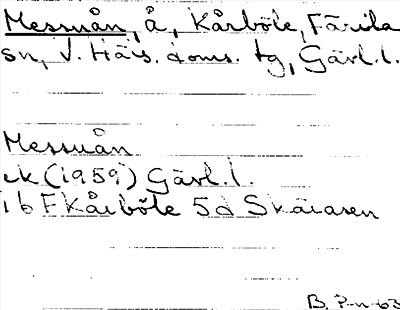 Messuån, å, Kårböle, Färila
sn, V. Häls. doms. tg, Gävl.l.
Messuån
ek (1959) Gävl.l.
16 F Kårböle 5d Skäråsen
B.